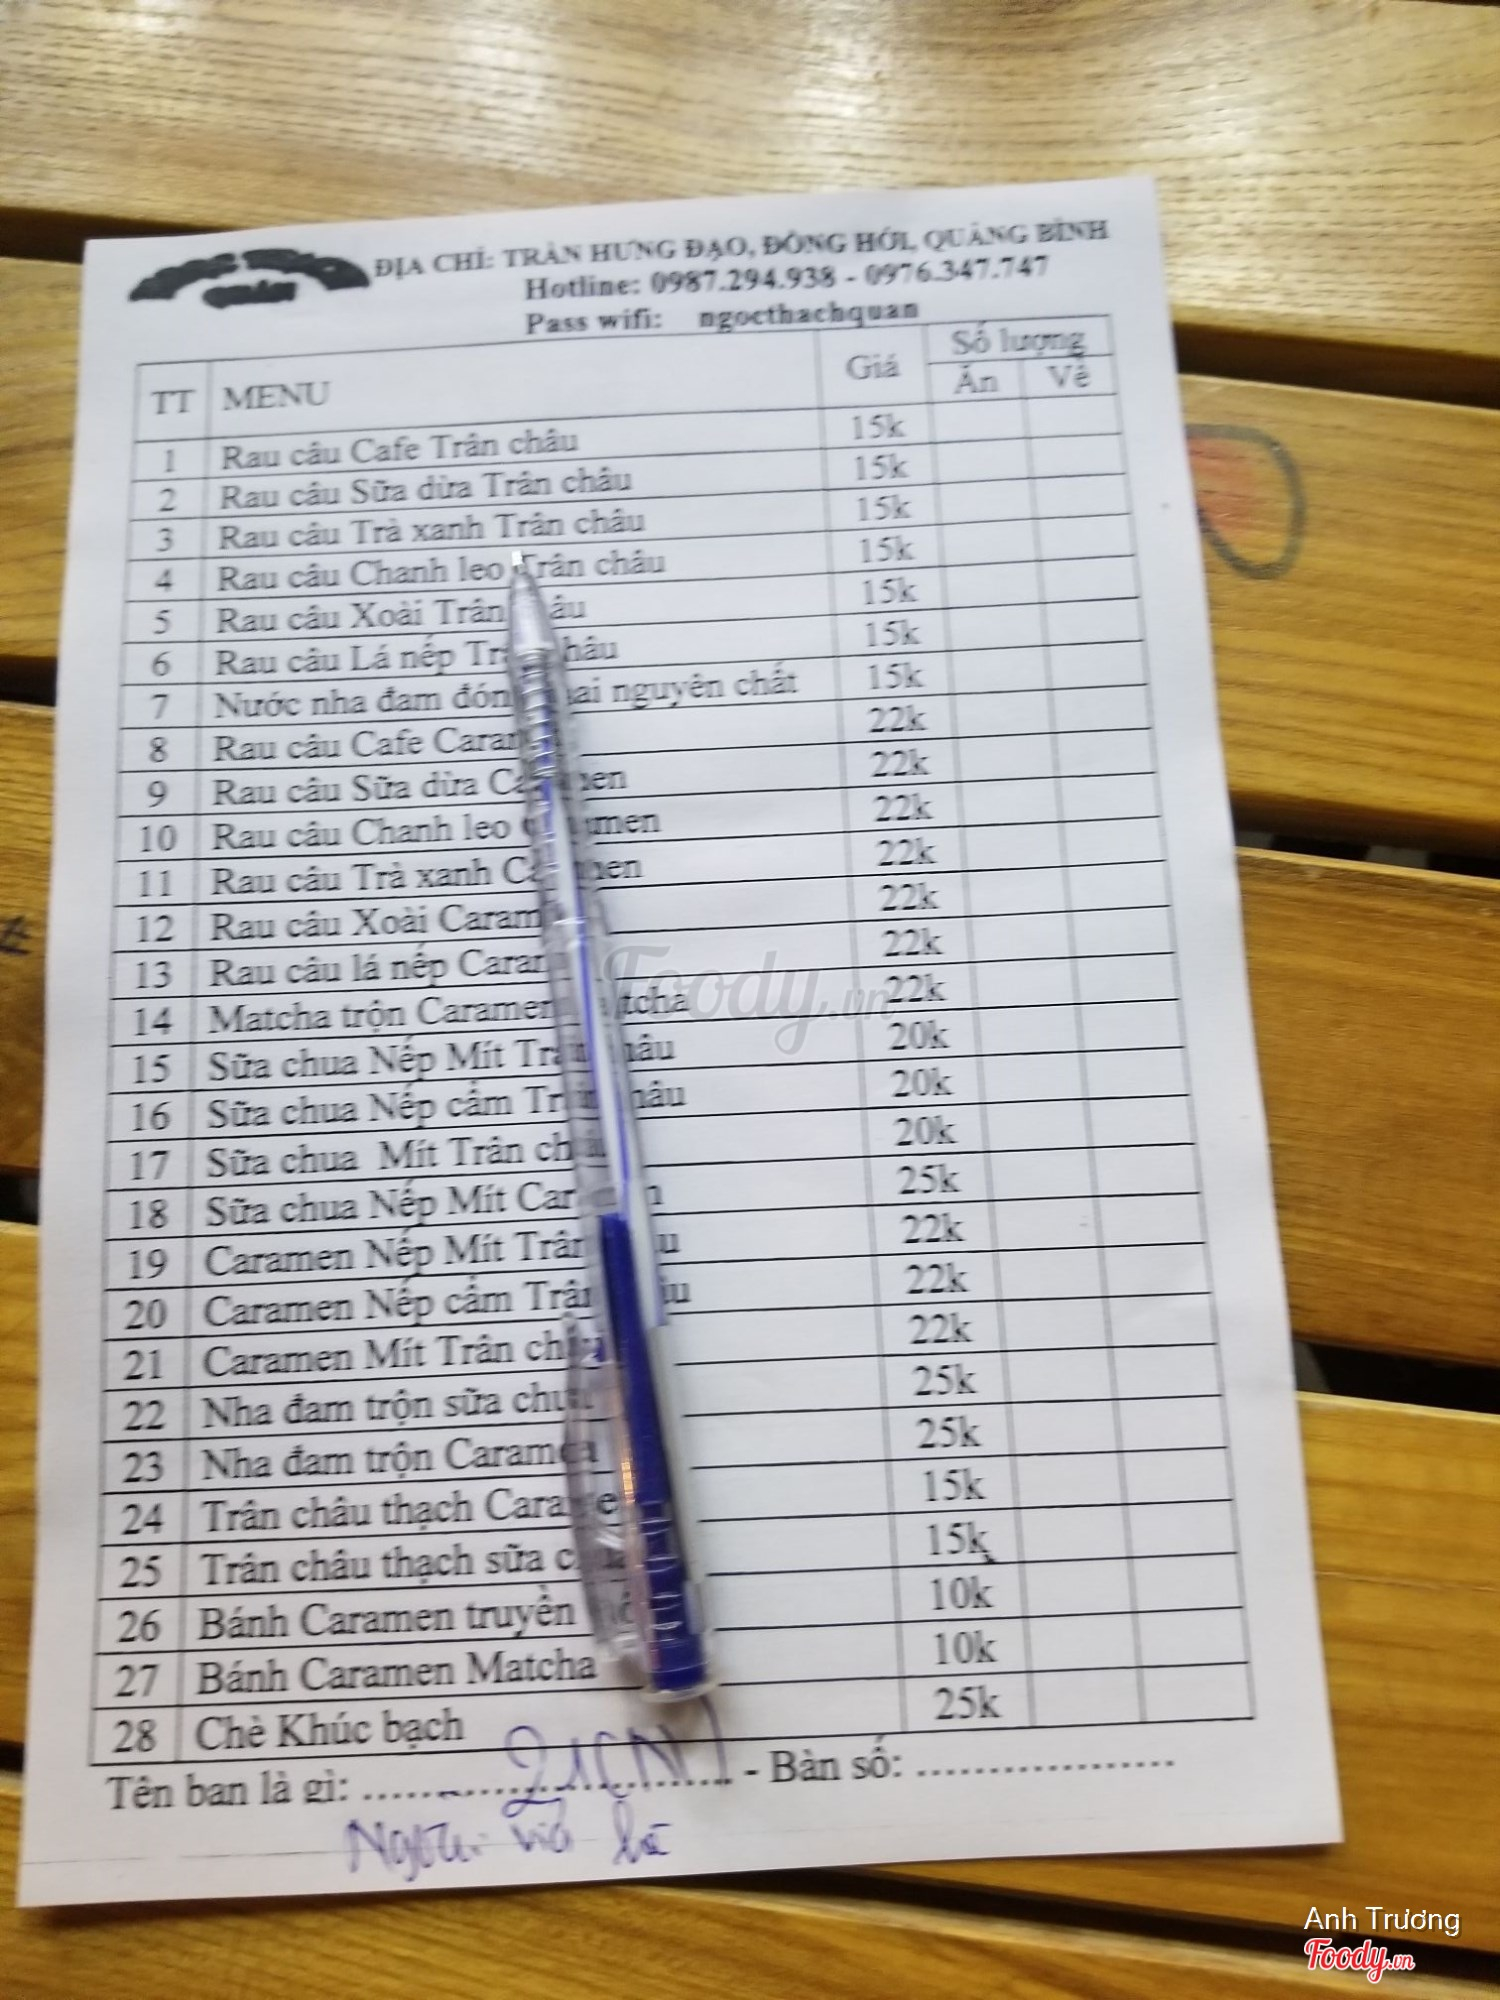 QUÁN
ĐỊA CHỈ: TRẦN HƯNG ĐẠO, ĐỒNG HỚI, QUẢNG BÌNH
Hotline: 0987.294.938 - 0976.347.747
Pass wifi: ngocthachquan
TT MENU Giá Số lượng
Ăn Về
1 Rau câu Cafe Trân châu 15k
2 Rau câu Sữa dừa Trân châu 15k
3 Rau câu Trà xanh Trân châu 15k
4 Rau câu Chanh leo Trân châu 15k
5 Rau câu Xoài Trân châu 15k
6 Rau câu Lá nếp Trân châu 15k
7 Nước nha đam đóng chai nguyên chất 15k
8 Rau câu Cafe Caramen 22k
9 Rau câu Sữa dừa Caramen 22k
10 Rau câu Chanh leo Caramen 22k
11 Rau câu Trà xanh Caramen 22k
12 Rau câu Xoài Caramen 22k
13 Rau câu lá nếp Caramen 22k
14 Matcha trộn Caramen Matcha 22k
15 Sữa chua Nếp Mít Trân châu 20k
16 Sữa chua Nếp cẩm Trân châu 20k
17 Sữa chua Mít Trân châu 20k
18 Sữa chua Nếp Mít Caramen 25k
19 Caramen Nếp Mít Trân châu 22k
20 Caramen Nếp cẩm Trân châu 22k
21 Caramen Mít Trân châu 22k
22 Nha đam trộn sữa chua 25k
23 Nha đam trộn Caramen 25k
24 Trân châu thạch Caramen 15k
25 Trân châu thạch sữa chua 15k
26 Bánh Caramen truyền thống 10k
27 Bánh Caramen Matcha 10k
28 Chè Khúc bạch 25k
Tên bạn là gì: ........................ - Bàn số: ..................
Foody.vn
Anh Trương
Foody.vn